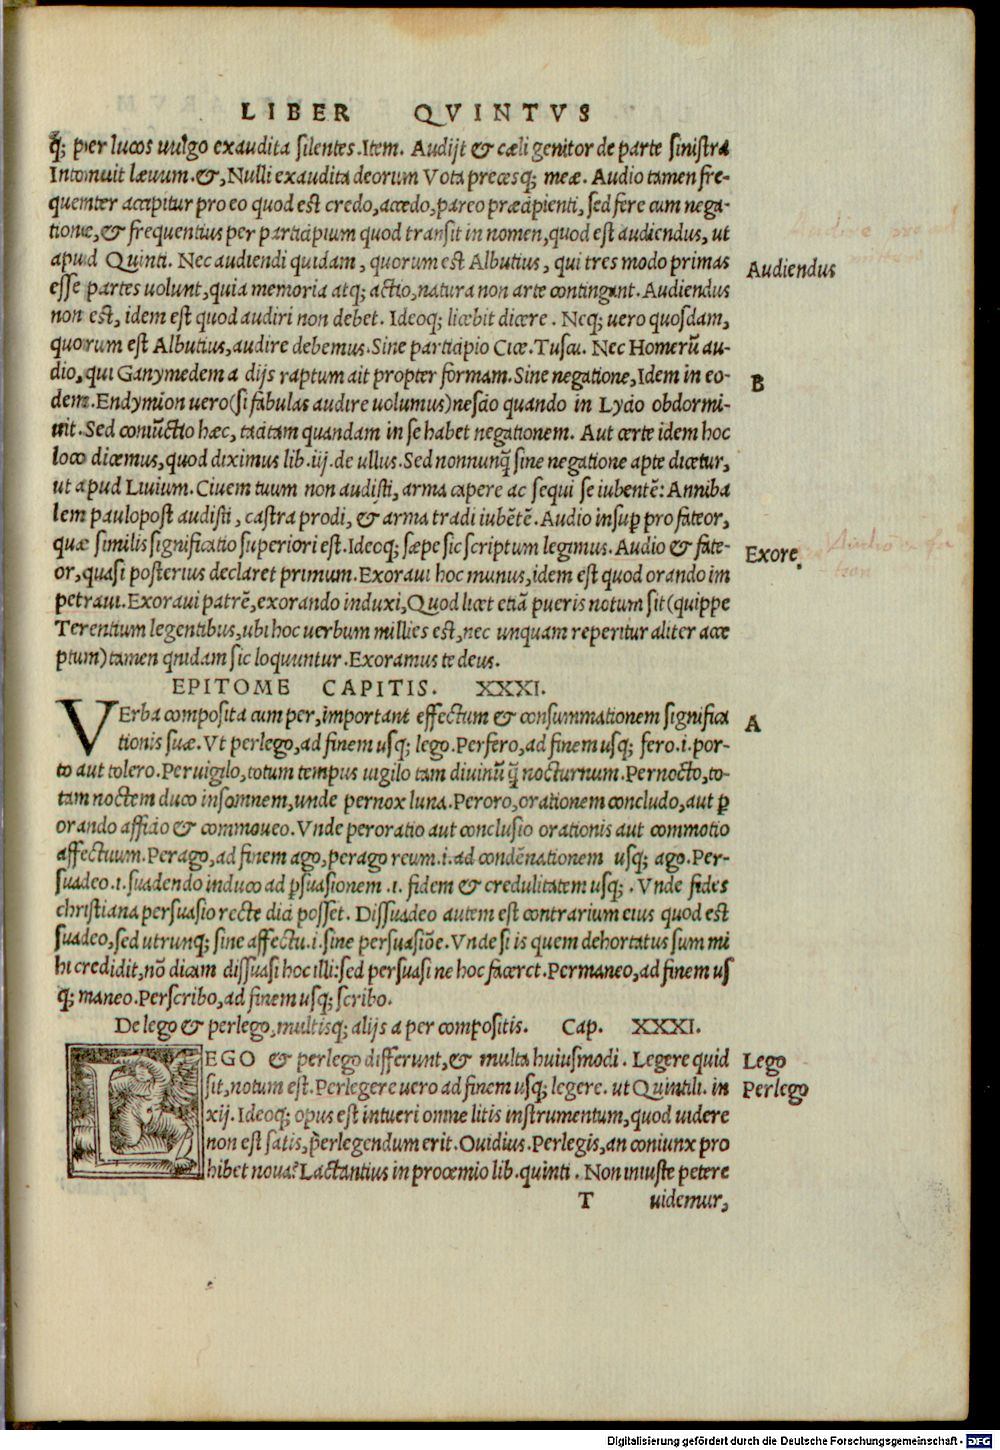 LIBER QVINTVS
q; per lucos uulgo exaudita silentes. Item. Audijt & cæli genitor de parte sinistra
Intonuit læuum. &, Nulli exaudita deorum Vota precesq; meæ. Audio tamen fre-
quenter accipitur pro eo quod est credo, accedo, pareo præcipienti, sed fere cum nega-
tione, & frequentius per participium quod transit in nomen, quod est audiendus, ut
apud Quinti. Nec audiendi quidam, quorum est Albutius, qui tres modo primas
Audiendus
esse partes uolunt, quia memoria atq; actio, natura non arte contingant. Audiendus
non est, idem est quod audiri non debet. Ideoq; licebit dicere. Neq; uero quosdam,
quorum est Albutius, audire debemus. Sine participio Cice. Tuscu. Nec Homerū au-
dio, qui Ganymedem a dijs raptum ait propter formam. Sine negatione, Idem in eo-
B
dem. Endymion uero (si fabulas audire uolumus) nescio quando in Lycio obdormi-
uit. Sed coniūctio hæc, tacitam quandam in se habet negationem. Aut certe idem hoc
loco dicemus, quod diximus lib. iij. de ullus. Sed nonnunq̃ sine negatione apte dicetur,
ut apud Liuium. Ciuem tuum non audisti, arma capere ac sequi se iubentē: Anniba
lem paulopost audisti, castra prodi, & arma tradi iubētē. Audio insup̱ pro fateor,
quæ similis significatio superiori est. Ideoq; sæpe sic scriptum legimus. Audio & fate-
Exore.
or, quasi posterius declaret primum. Exoraui hoc munus, idem est quod orando im
petraui. Exoraui patrē, exorando induxi, Quod licet etiā pueris notum sit (quippe
Terentium legentibus, ubi hoc uerbum millies est, nec unquam reperitur aliter acce
ptum) tamen quidam sic loquuntur. Exoramus te deus.
EPITOME CAPITIS. XXXI.
VErba composita cum per, important effectum & consummationem significa
A
tionis suæ. Vt perlego, ad finem usq; lego. Perfero, ad finem usq; fero. i. por-
to aut tolero. Peruigilo, totum tempus uigilo tam diuinū q̃ nocturnum. Pernocto, to-
tam noctem duco insomnem, unde pernox luna. Peroro, orationem concludo, aut p̱
orando afficio & commoueo. Vnde peroratio aut conclusio orationis aut commotio
affectuum. Perago, ad finem ago, perago reum. i. ad condēnationem usq; ago. Per-
suadeo. i. suadendo induco ad p̱suasionem. i. fidem & credulitatem usq;. Vnde fides
christiana persuasio recte dici posset. Dissuadeo autem est contrarium eius quod est
suadeo, sed utrunq; sine affectu. i. sine persuasiōe. Vnde si is quem dehortatus sum mi
hi credidit, nō dicam dissuasi hoc illi: sed persuasi ne hoc faceret. Permaneo, ad finem us
q; maneo. Perscribo, ad finem usq; scribo.
De lego & perlego, multisq; alijs a per compositis. Cap. XXXI.
LEGO & perlego differunt, & multa huiusmodi. Legere quid
Lego
sit, notum est. Perlegere uero ad finem usq; legere. ut Quintili. in
Perlego
xij. Ideoq; opus est intueri omne litis instrumentum, quod uidere
non est satis, p̱erlegendum erit. Ouidius. Perlegis, an coniunx pro
hibet noua? Lactantius in proœmio lib. quinti. Non iniuste petere
T uidemur,
Digitalisierung gefördert durch die Deutsche Forschungsgemeinschaft - DFG